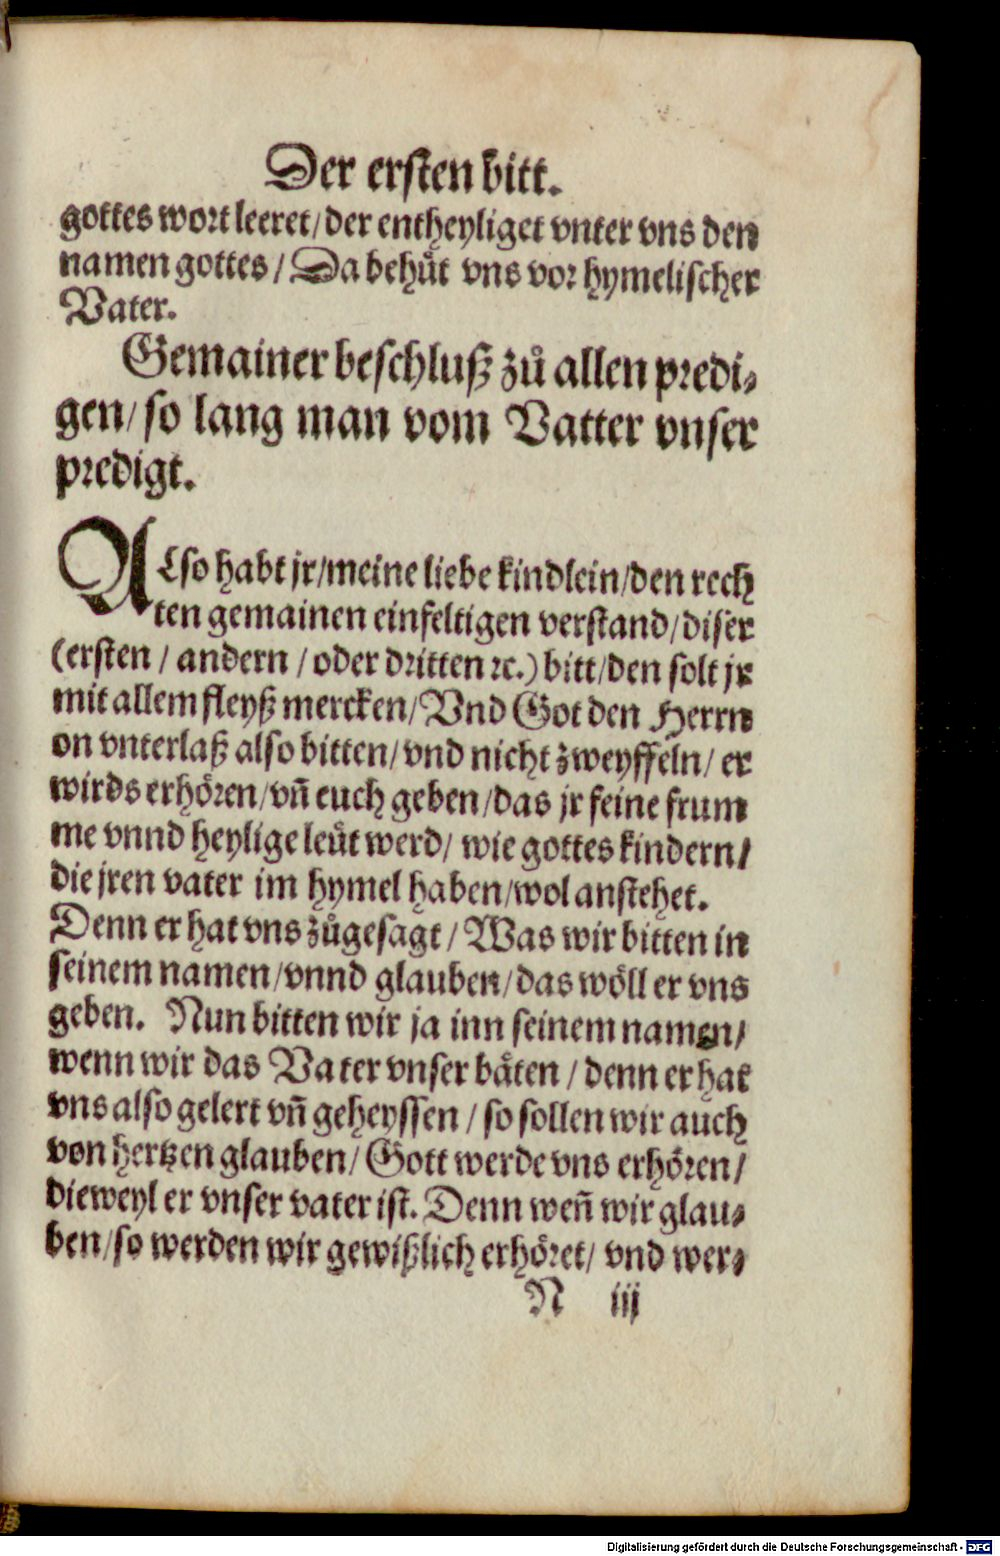 Der ersten bitt.
gottes wort leeret/der entheyliget vnter vns den
namen gottes/Da behuͤt vns vor hymelischer
Vater.
Gemainer beschluß zuͦ allen predi⸗
gen/so lang man vom Vatter vnser
predigt.
Also habt jr/meine liebe kindlein/den rech
ten gemainen einfeltigen verstand/diser
(ersten / andern / oder dritten ꝛc.) bitt/den solt jr
mit allem fleyß mercken/Vnd Got den Herrn
on vnterlaß also bitten/vnd nicht zweyffeln/ er
wirds erhoͤren/vn̄ euch geben/das jr feine frum
me vnnd heylige leuͤt werd/ wie gottes kindern/
die jren vater im hymel haben/wol anstehet.
Denn er hat vns zuͦgesagt/Was wir bitten in
seinem namen/vnnd glauben/das woͤll er vns
geben. Nun bitten wir ja inn seinem namen/
wenn wir das Vater vnser baͤten/denn er hat
vns also gelert vn̄ geheyssen/so sollen wir auch
von hertzen glauben/Gott werde vns erhoͤren/
dieweyl er vnser vater ist. Denn wen̄ wir glau⸗
ben/so werden wir gewißlich erhoͤret/ vnd wer⸗
N iij
Digitalisierung gefördert durch die Deutsche Forschungsgemeinschaft - DFG